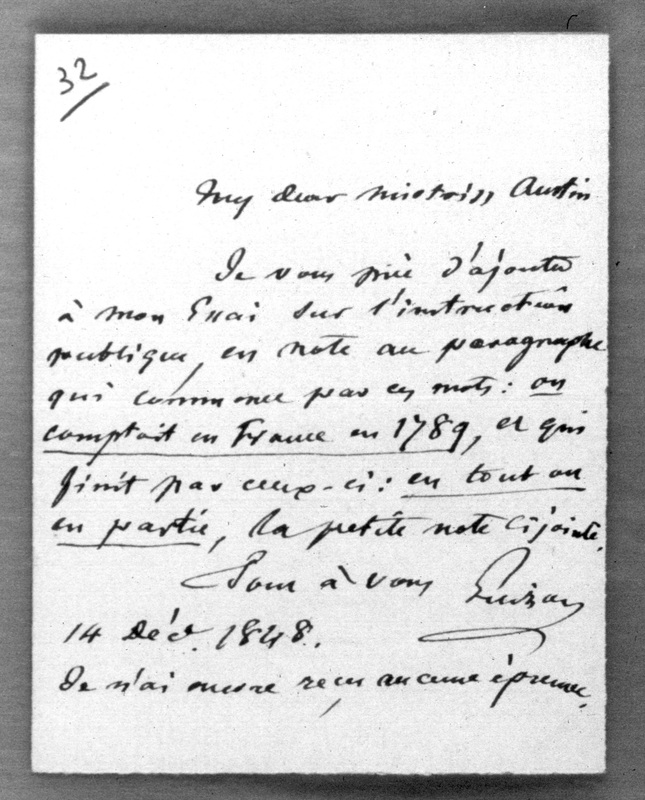 32
My dear mistriss Austin
Je vous prie d'ajouter
à mon Essai sur l'instruction
publique, en note au paragraphe
qui commence par ces mots: on
comptait en France en 1789, et qui
finit par ceux-ci: en tout ou
en partie, la petite note ci jointe.
Tout à vous Guizot
14 Déc. 1848.
Je n'ai encore reçu aucune épreuve.